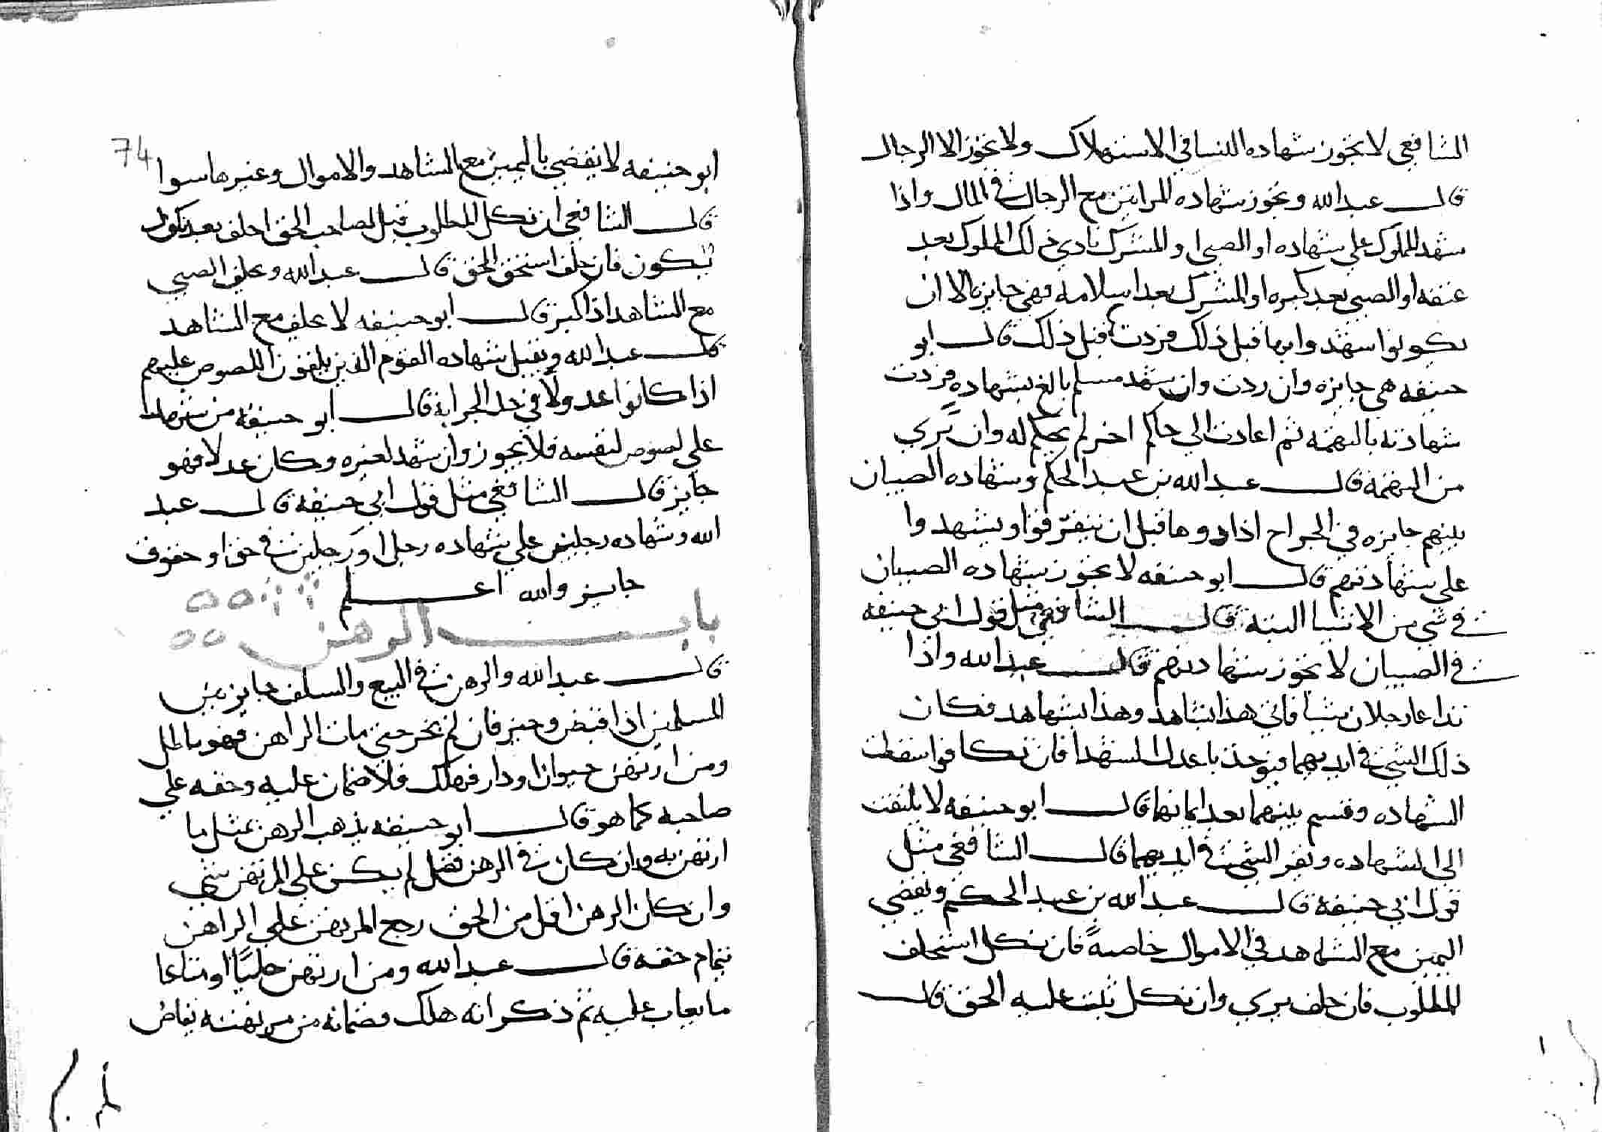 الشافعي لا تجوز شهاده النسا في الاستهلاك ولا تجوز الا الرجال
قال عبدالله وتجوز شهاده المراتين مع الرجال في المال واذا
شهد المملوك على شهاده او الصبي او المشرك فادي ذلك المملوك بعد
عتقه او الصبي بعد كبره او المشرك بعد اسلامه فهي جايزه الا ان
يكونوا شهد وابها قبل ذلك فردت قبل ذلك قال ابو
حنيفه هي جايزه وان ردت وان شهد مسلم بالغ بشهاده فردت
شهادته بالتهمه ثم اعادت الى حاكم اخر لم يحكم له وان تبري
من التهمة قال عبد الله بن عبد الحكم وشهاده الصبيان
بينهم جايزه في الجراح اذا ادوها قبل ان يتفرقوا او يشهد وا
على شهادتهم قال ابو حنيفه لا تجوز شهاده الصبيان
في شي من الاشيا البته قال الشافعي مثل قول ابي حنيفه
في الصبيان لا تجوز شهادتهم قال عبد الله واذا
تداعا رجلان شيا فاتى هذا بشاهد وهذا بشاهد فكان
ذلك الشي في ايديهما فيوخذ باعدل الشهدا فان تكافوا سقطت
الشهاده وقسم بينهما بعد ايمانهما قال ابو حنيفه لا يلتفت
الى الشهاده ويقر الشي في ايديهما قال الشافعي مثل
قول ابي حنيفة قال عبد الله بن عبد الحكم ويقضي
اليمين مع الشاهد في الاموال خاصةً فان نكل استحلف
المطلوب فان حلف بري وان نكل ثبت عليه الحق قال
74
ابو حنيفه لا يقضي باليمين مع الشاهد والاموال وغيرها سوا
قال الشافعي ان نكل المطلوب قيل لصاحب الحق احلف بعد نكول
فان حلف استحق الحق قال عبد الله ويحلف الصبي
مع الشاهد اذا كبر قال ابو حنيفه لا يحلف مع الشاهد
قال عبد الله ويقبل شهاده القوم الذين يلقون اللصوص عليهم
اذا كانوا عدولًا في حد الحرابة قال ابو حنيفه من شهد
على لصوص لنفسه فلا يجوز وان شهد لغيره وكان عدلا فهو
جايز قال الشافعي مثل قول ابي حنيفة قال عبد
الله وشهاده رجلين على شهاده رجل او رجلين في حق او حقوق
جايز والله اعلم
باب الرهن
قال عبد الله والرهن في البيع والسلف جايز بين
المسلمين اذا قبض وحيز فان لم يحز حتى مات الراهن فهو باطل
ومن ارتهن حيوانا او دار فهلك فلا ضمان عليه وحقه على
صاحبه كما هو قال ابو حنيفه يذهب الرهن بمثل ما
ارتهن به وان كان في الرهن فضل لم يكن على المرتهن شي
وان كان الرهن اقل من الحق رجع المرتهن على الراهن
بتمام حقه قال عبد الله ومن ارتهن حليًا او متاعا
ما يغاب عليه ثم ذكر انه هلك فضمانه من مرتهنه يقاض